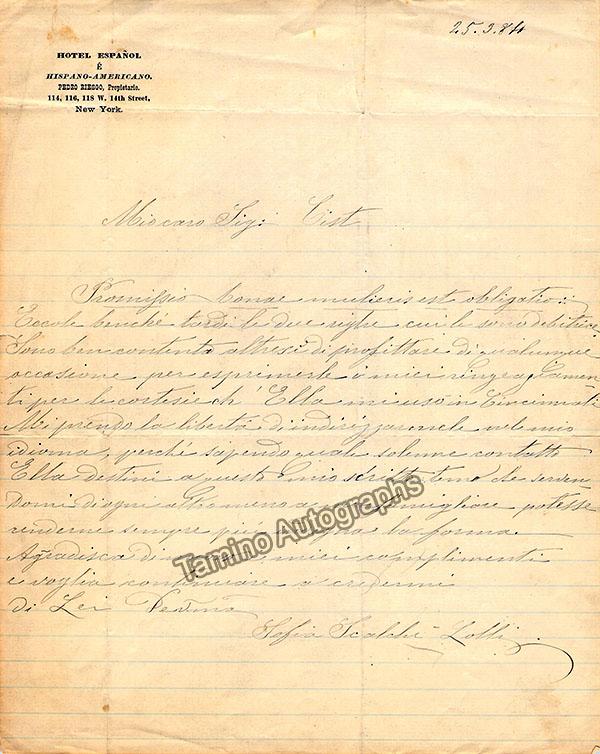 25.3.84
HOTEL ESPAÑOL
É
HISPANO-AMERICANO.
PEDRO RIESGO, Propietario.
114, 116, 118 W. 14th Street,
New York.
Mio caro Sig: Cist
Promissio bonae mulieris est obligatio:
Eccole benché tardi le due righe cui le sono debitrice.
Sono ben contenta altresì di profittare di qualunque
occasione per esprimerle i miei ringraziamen
ti per le cortesie ch'Ella mi usò in Cincinnati
Mi prendo la libertà di indirizzarmele nel mio
idioma, perché sapendo quale solenne contatto
Ella destini a questo mio scritto temo che serven
domi di ogni altro meno a me famigliare potesse
renderne sempre più la forma.
Aggradisca di miei complimenti
e voglia continuare a credermi
di Lei Devma
Sofia Scalchi-Lolli
Tamino Autographs